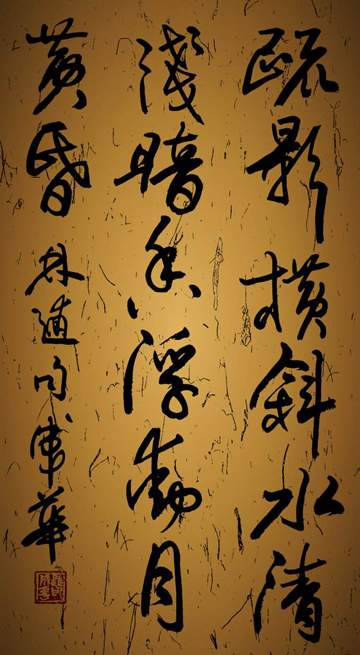 疏影横斜水清
浅暗香浮动月
黄昏 林逋句 华